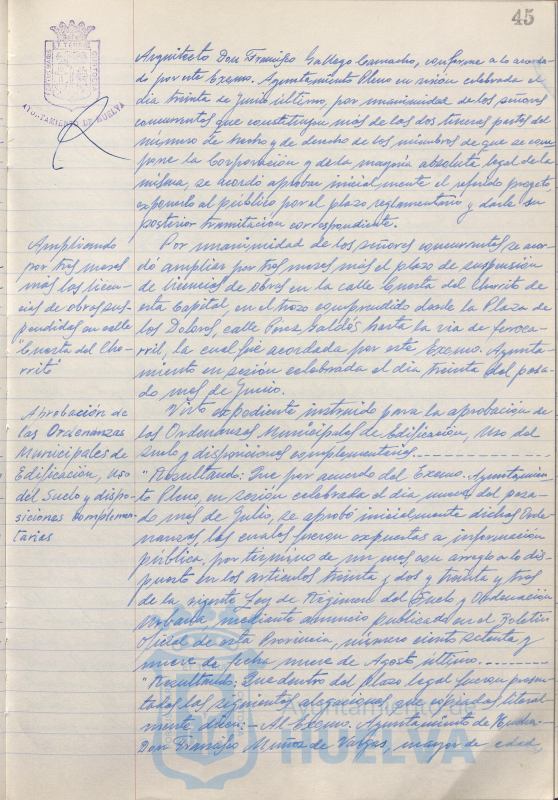 45
AYUNTAMIENTO DE HUELVA
Arquitecto Don Francisco Gallego Camacho, conforme a lo acorda-
do por este Excmo. Ayuntamiento Pleno en sesión celebrada el
día treinta de Junio último, por unanimidad de los señores
concurrentes que constituyen más de las dos terceras partes del
número de hecho y de derecho de los miembros de que se com-
pone la Corporación y de la mayoría absoluta legal de la
misma, se acordó aprobar inicialmente el referido proyecto
exponerlo al público por el plazo reglamentario y darle su
posterior tramitación correspondiente.
Ampliando
por tres meses
más las licen-
cias de obras sus-
pendidas en calle
"Cuesta del Cho-
rrito"
Por unanimidad de los señores concurrentes se acor-
dó ampliar por tres meses más el plazo de suspensión
de licencias de obras en la calle Cuesta del Chorrito de
esta Capital, en el trozo comprendido desde la Plaza de
los Dolores, calle Pérez Galdós hasta la vía de ferroca-
rril, la cual fué acordada por este Excmo. Ayunta-
miento en sesión celebrada el día treinta del pasa-
do mes de Junio.
Aprobación de
las Ordenanzas
Municipales de
Edificación, Uso
del Suelo y dispo-
siciones complemen-
tarias
Visto expediente instruido para la aprobación de
las Ordenanzas Municipales de Edificación, Uso del
Suelo y disposiciones complementarias
"Resultando: Que por acuerdo del Excmo. Ayuntamien-
to Pleno, en sesión celebrada el día nueve del pasa-
do mes de Julio, se aprobó inicialmente dichas Orde-
nanzas, las cuales fueron expuestas a información
pública, por término de un mes, con arreglo a lo dis-
puesto en los artículos treinta y dos y treinta y tres
de la vigente Ley de Régimen del Suelo y Ordenación
Urbana, mediante anuncio publicado en el Boletín
Oficial de esta Provincia, número ciento setenta y
nueve de fecha nueve de Agosto último.
"Resultando: Que dentro del plazo legal fueron presen-
tadas las siguientes alegaciones que copiadas literal-
mente dicen:- Al Excmo. Ayuntamiento de Huelva.-
Don Francisco Muñoz de Vargas, mayor de edad,
Ayuntamiento de
HUELVA